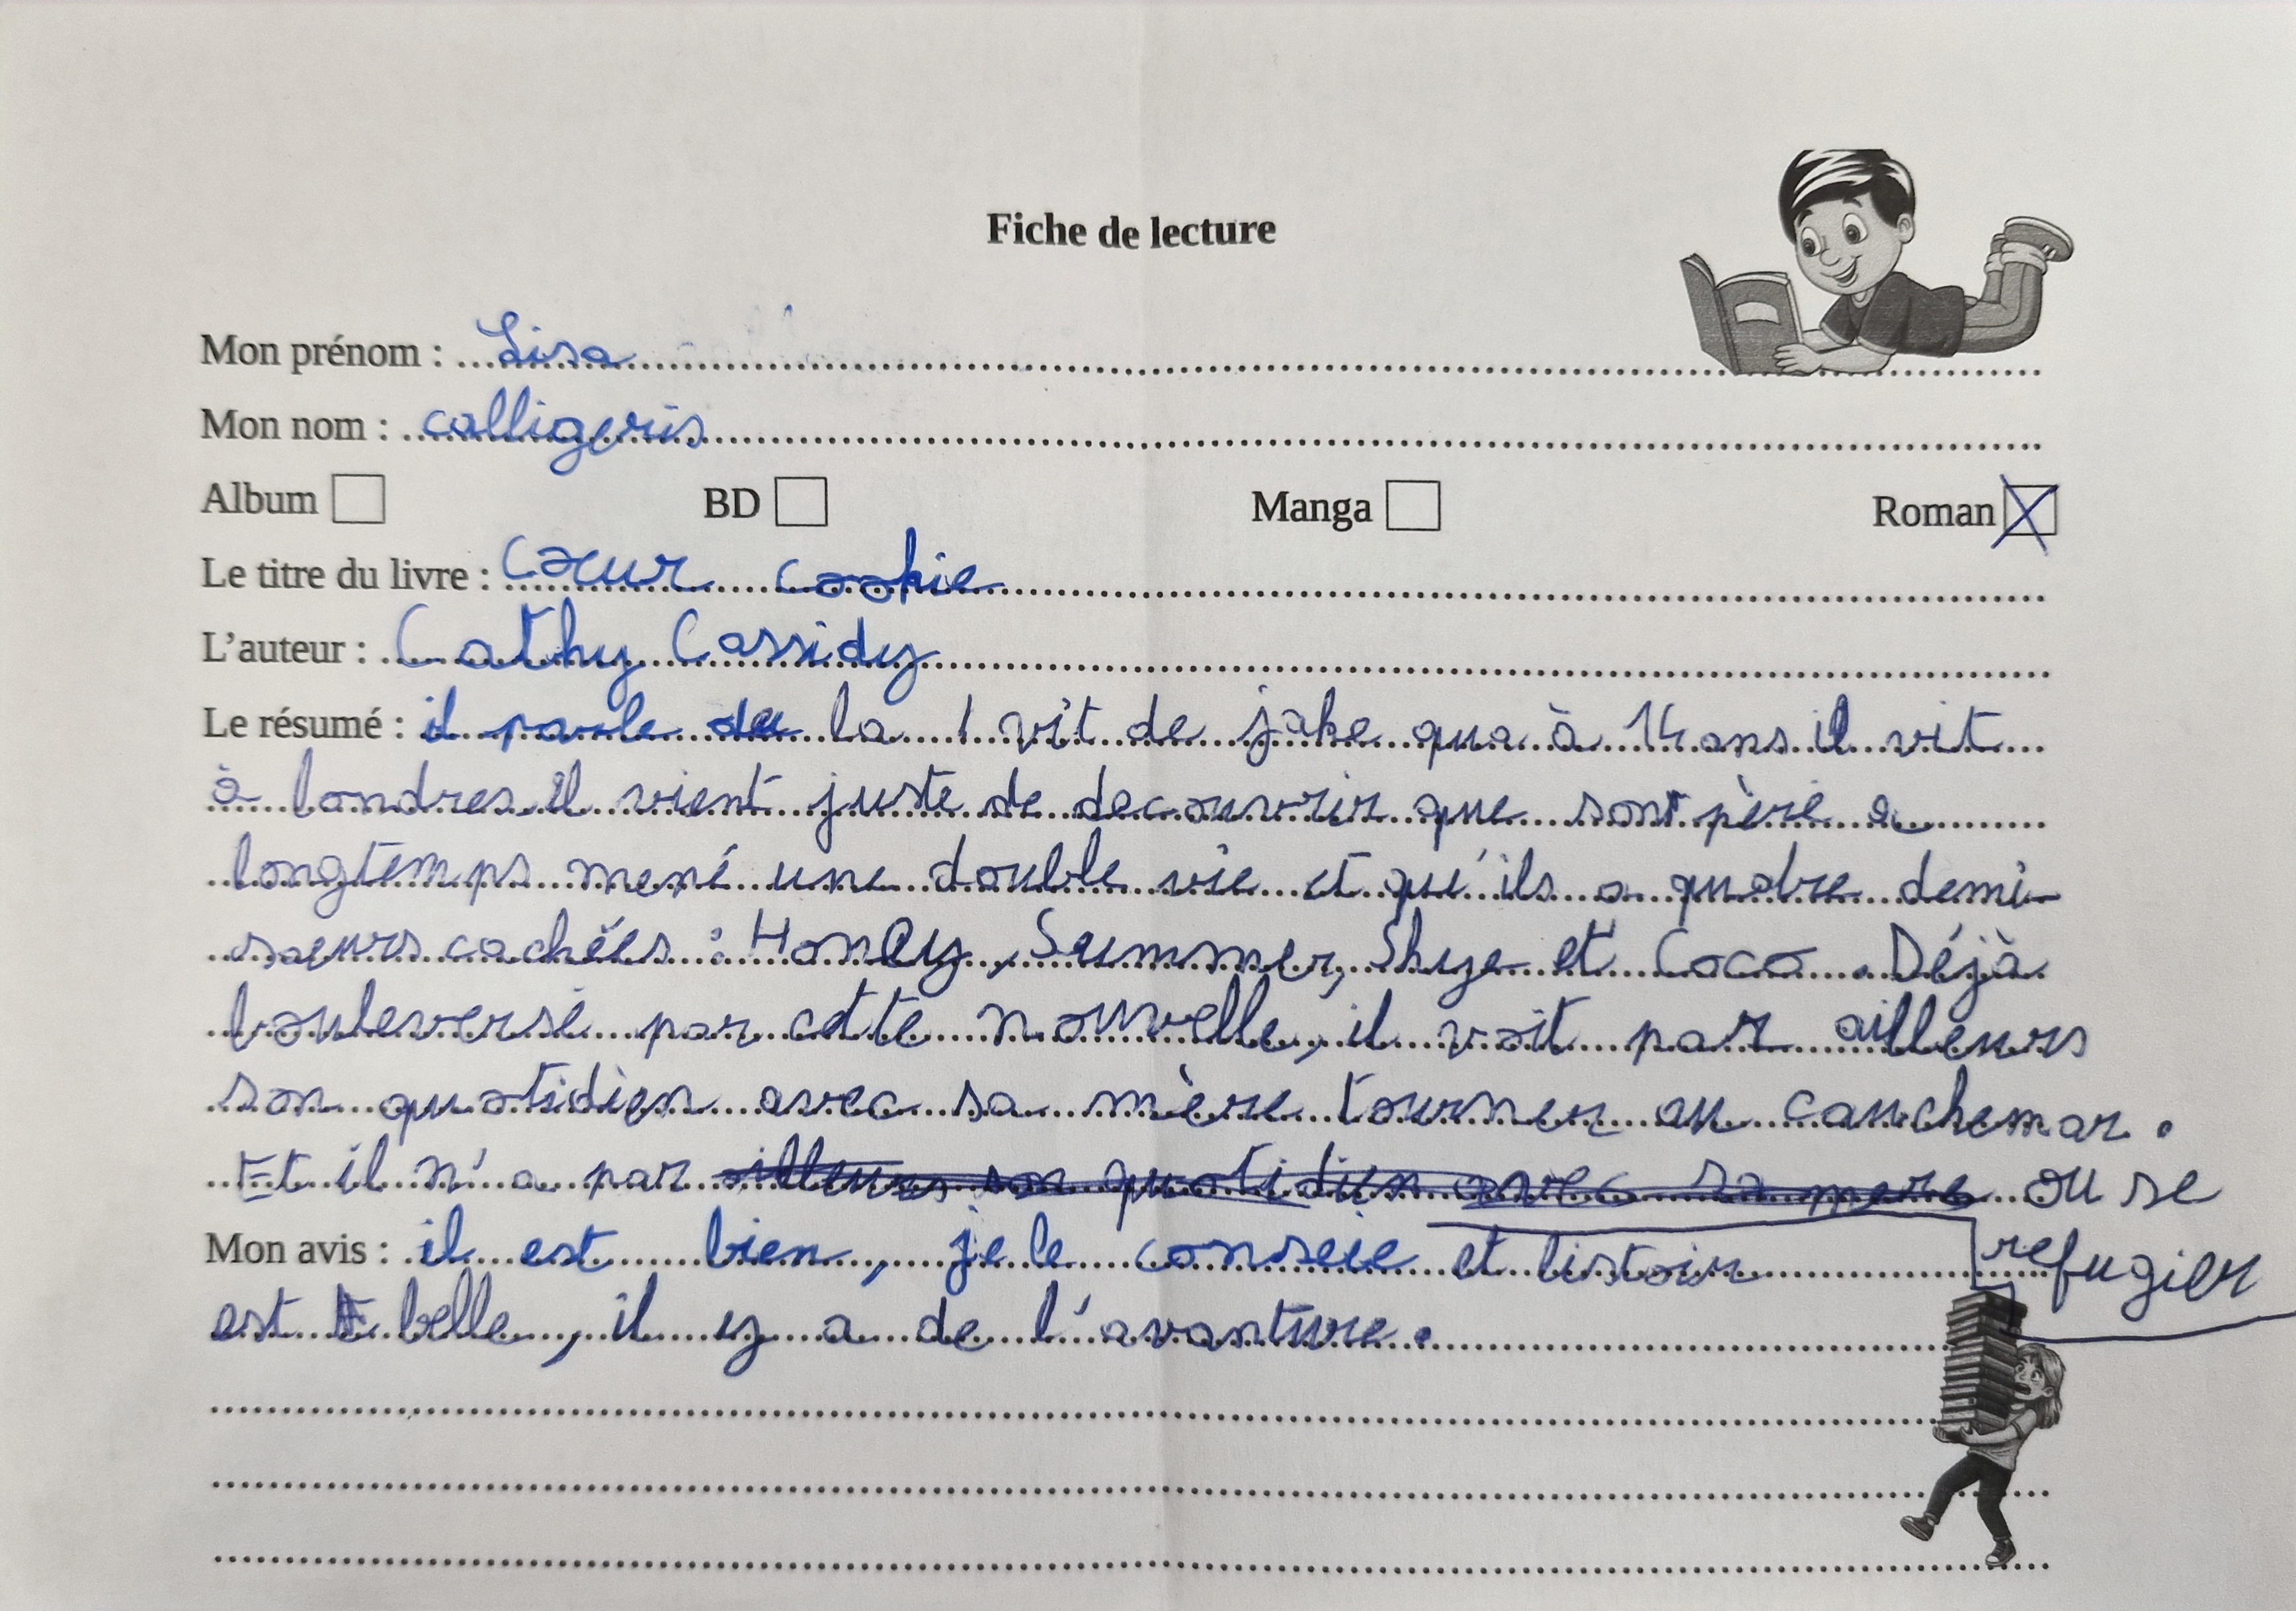 Fiche de lecture
Mon prénom : Lisa
Mon nom : calligeris
Album BD Manga Roman
Le titre du livre : Cœur cookie
L'auteur : Cathy Cassidy
Le résumé : il parle de la vit de jake qua à 14 ans il vit
à londres il vient juste de decouvrir que sont père a
longtemps mené une double vie et qu'ils a quatre demi-
sœurs cachées : Honey, Summer, Skye et Coco. Déjà
bouleversé par cette nouvelle, il voit par ailleurs
son quotidien avec sa mère tourner au cauchemar.
Et il n'a par ailleurs son quotidien avec sa mere ou se
refugier
Mon avis : il est bien, je le conseie et listoir
est belle, il y a de l'avanture.